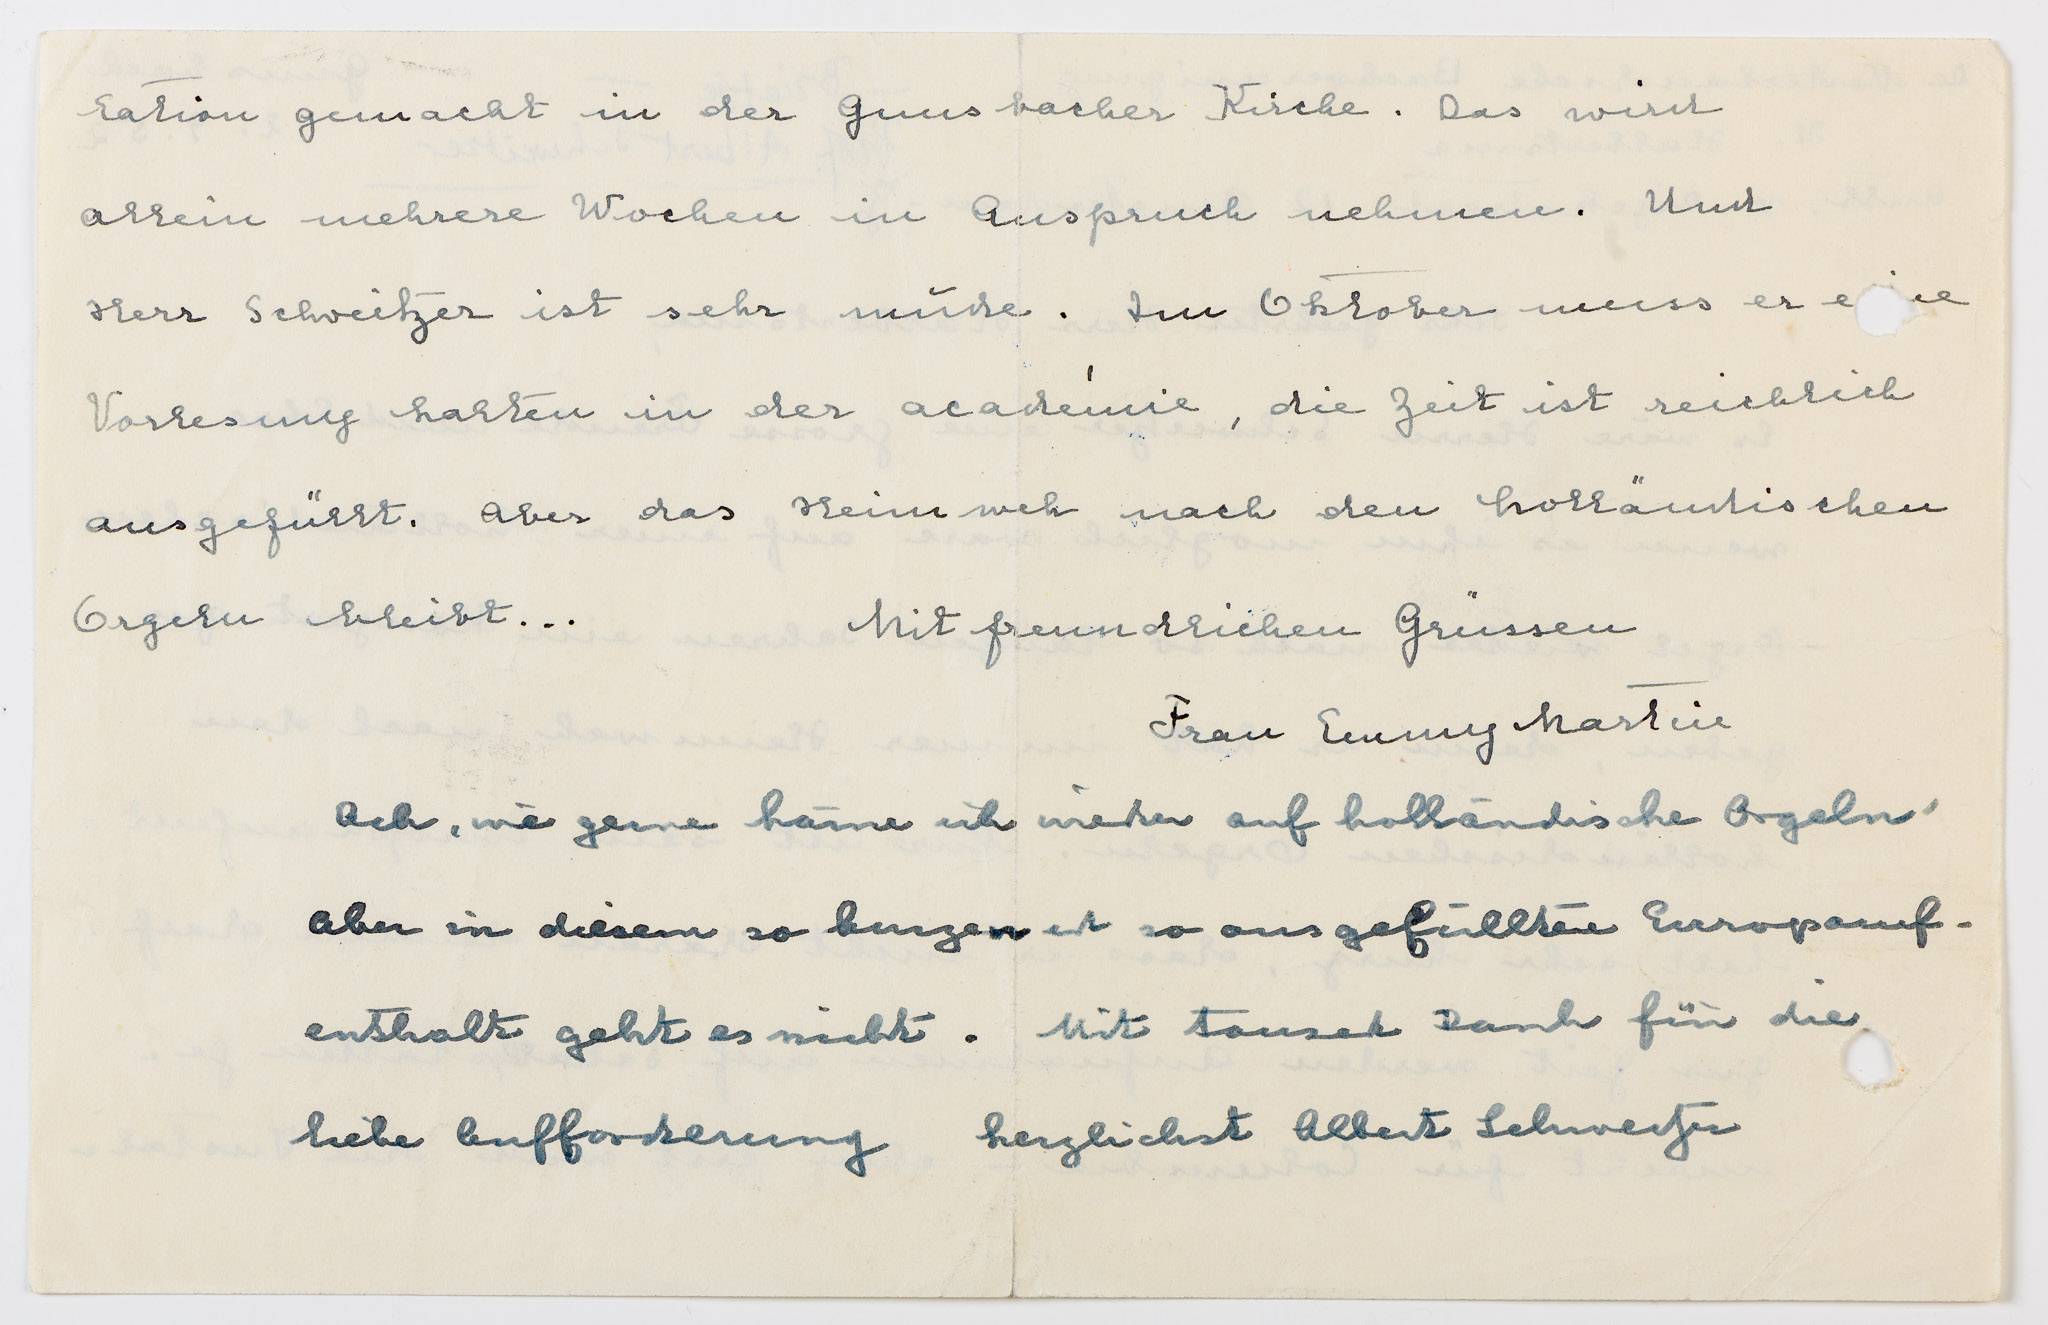 tation gemacht in der Gunsbacher Kirche. Das wird
allein mehrere Wochen in Anspruch nehmen. Und
Herr Schweitzer ist sehr müde. Im Oktober muss er eine
Vorlesung halten in der académie, die Zeit ist reichlich
ausgefüllt. Aber das Heimweh nach den holländischen
Orgeln bleibt... Mit freundlichen Grüssen
Frau Emmy Martin
Ach, wie gerne käme ich wieder auf holländische Orgeln!
Aber in diesem so kurzen und so ausgefüllten Europauf-
enthalt geht es nicht. Mit tausend Dank für die
liebe Aufforderung herzlichst Albert Schweitzer